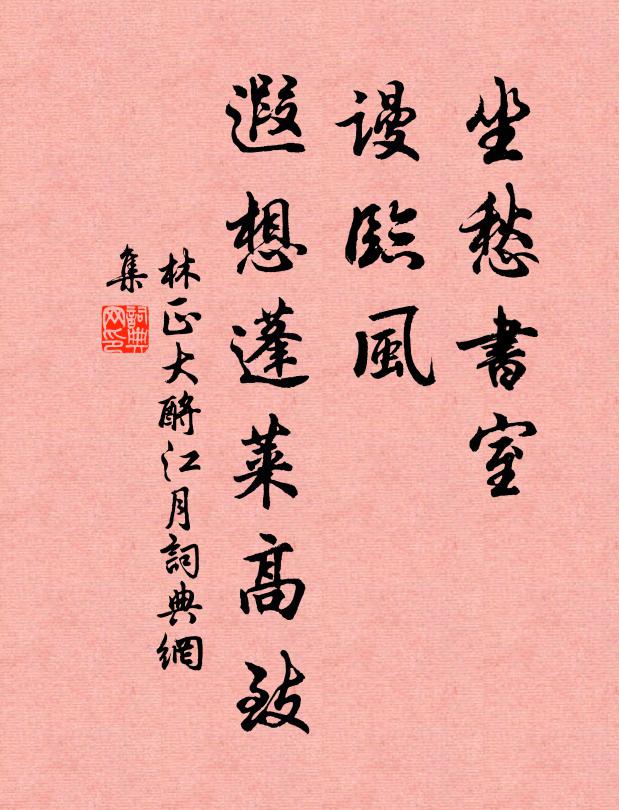 坐愁書室
謾臨風
遐想蓬萊高致
林正大酹江月詞典網
集
詞典網印